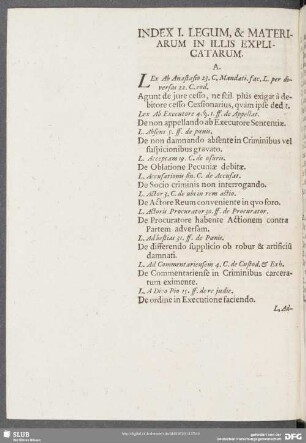 INDEX I. LEGUM, & MATERI-
ARUM IN ILLIS EXPLI-
CATARUM.
A.
LEx Ab Anastasio 23. C, Mandati. fac, L. per di-
versas 22. C. eod.
Agunt de jure cesso, ne scil. plus exigat à de-
bitore cesso Cessionarius, quàm ipse dedit.
Lex Ab Executore 4. §. 1. ff. de Appellat.
De non appellando ab Executore Sententiæ.
L. Absens 5. ff. de pœnis.
De non damnando absente in Criminibus vel
suspicionibus gravato.
L. Acceptam 19. C. de usuris.
De Oblatione Pecuniæ debitæ.
L. Accusationis fin. C. de Accusat.
De Socio criminis non interrogando.
L. Actor 3. C. de ubi in rem actio.
De Actore Reum conveniente in quo foro.
L. Actoris Procurator 50. ff. de Procurator.
De Procuratore habente Actionem contra
Partem adversam.
L. Adhestias 31. ff. de Pœnis.
De differendo supplicio ob robur & artificiū
damnati.
L. Ad Commentariensem 4. C. de Custod. & Exh.
De Commentariense in Criminibus carcera-
tum eximente.
L. A Divo Pio 15. ff. de re judic.
De ordine in Executione faciendo.
L, Ad-
SLUB
DFG